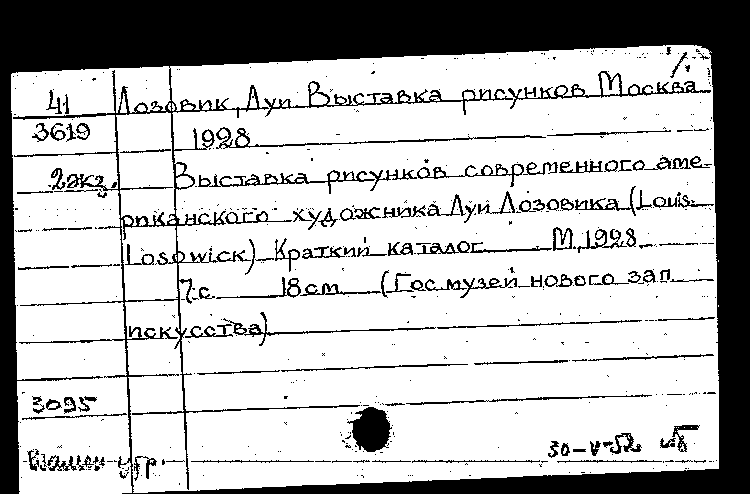 41 Лозовик, Луи. Выставка рисунков Москва
3619 1928.
2экз. Выставка рисунков современного аме-
риканского художника Луи Лозовика (Louis.
Losowick) Краткий каталог. М, 1928.
7.с. 18см (Гос. музей нового зап.
искусства)
3095
30-V-52